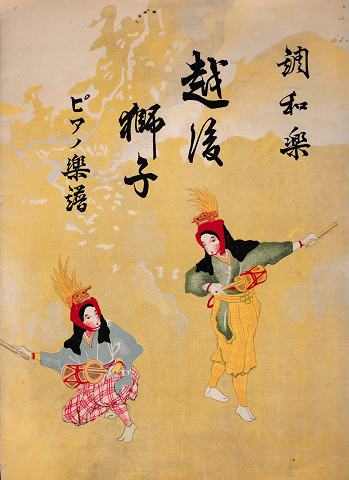 調和楽
越後
獅子
ピアノ楽譜